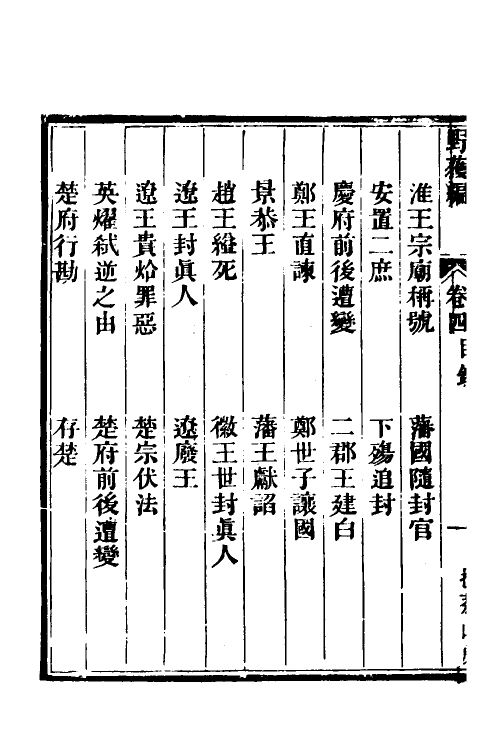 野獲編 卷四目錄 一
淮王宗廟稱號 藩國隨封官
安置二庶 下殤追封
慶府前後遭變 二郡王建白
鄭王直諫 鄭世子讓國
景恭王 藩王獻詔
趙王縊死 徽王世封眞人
遼王封眞人 遼廢王
遼王貴烚罪惡 楚宗伏法
英燿弑逆之由 楚府前後遭變
楚府行勘 存楚